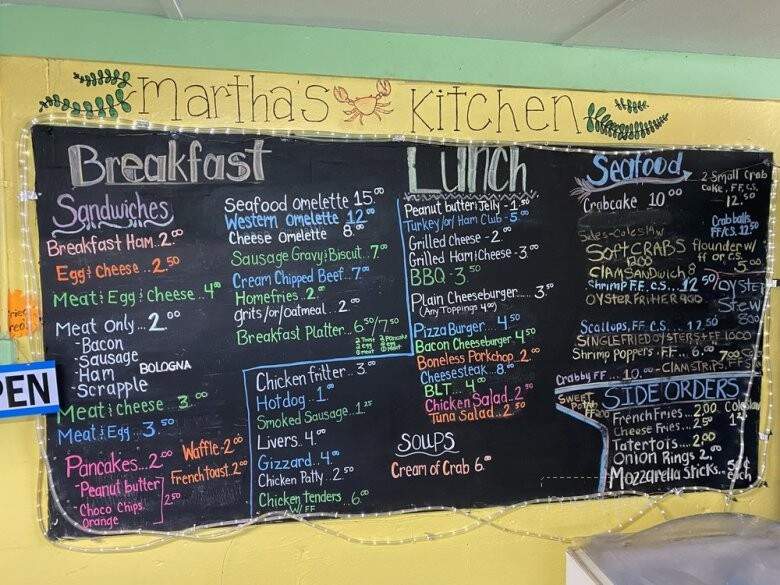 Martha's Kitchen
Breakfast
Sandwiches
Breakfast Ham..2.00
Egg & Cheese..2.50
Meat & Egg & Cheese..4.00
Meat only...2.00
-Bacon
-Sausage
-Ham BOLOGNA
-Scrapple
Meat & cheese...3.00
Meat & Egg..3.50
Pancakes...2.00
-Peanut butter
-Choco Chips
Orange
2.50
Waffle-2.00
French toast.2.00
Seafood omelette 15.00
Western omelette 12.00
Cheese omelette 8.00
Sausage Gravy & Biscut..7.00
Cream Chipped Beef..7.00
Homefries..2.00
grits/or/oatmeal...2.00
Breakfast Platter..6.50/7.50
Chicken fritter..3.00
Hotdog.1.00
Smoked Sausage.1.25
Livers.4.00
Gizzard..4.00
Chicken Patty..2.50
Chicken tenders..6.00
w/ FF
Lunch
Peanut butter & Jelly-1.50
Turkey/or/Ham Club-5.00
Grilled Cheese-2.00
Grilled Ham & Cheese-3.00
BBQ-3.50
Plain Cheeseburger.....3.50
(Any Toppings 4.00)
Pizza Burger...4.50
Bacon Cheeseburger.4.50
Boneless Porkchop..2.00
Cheesesteak..8.00
BLT..4.00
Chicken Salad..2.50
Tuna Salad..2.50
SOUPS
Cream of Crab 6.00
Seafood
Crabcake 10.00
Sides-Coleslaw
SOFTCRABS
12.00
CLAM SANDwich 8
Shrimp FF, C.S....12.50
OYSTER FRITTER 9.00
Scallops, FF C.S....12.50
SINGLE FRIED OYSTERS + FF 10.00
Shrimp Poppers.FF..6.00
Crabby FF...10.00
CLAM STRIPS, FF
7.00
2 Small crab
cake, FF, C.S.
12.50
Crab balls
FF/C.S. 12.50
flounder w/
ff or C.S.
5.00
OYSTER
Stew
8.00
SIDE ORDERS
SWEET
Potato
FF
French Fries....2.00
Cheese Fries...2.50
Tatertots....2.00
Onion Rings 2.00
Mozzarella Sticks..
each
Coleslaw
PEN